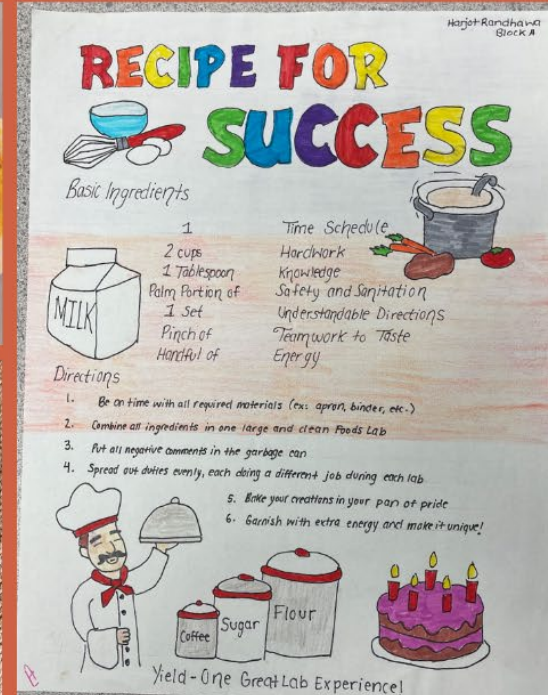 Harjot Randhawa
Block A
RECIPE FOR
SUCCESS
Basic Ingredients
1 Time Schedule
2 cups Hardwork
1 Tablespoon Knowledge
Palm Portion of Safety and Sanitation
1 Set Understandable Directions
Pinch of Teamwork to Taste
Handful of Energy
MILK
Directions
1. Be on time with all required materials (ex: apron, binder, etc.)
2. Combine all ingredients in one large and clean Foods Lab
3. Put all negative comments in the garbage can
4. Spread out duties evenly, each doing a different job during each lab
5. Bake your creations in your pan of pride
6. Garnish with extra energy and make it unique!
Coffee
Sugar
Flour
Yield - One Great Lab Experience!